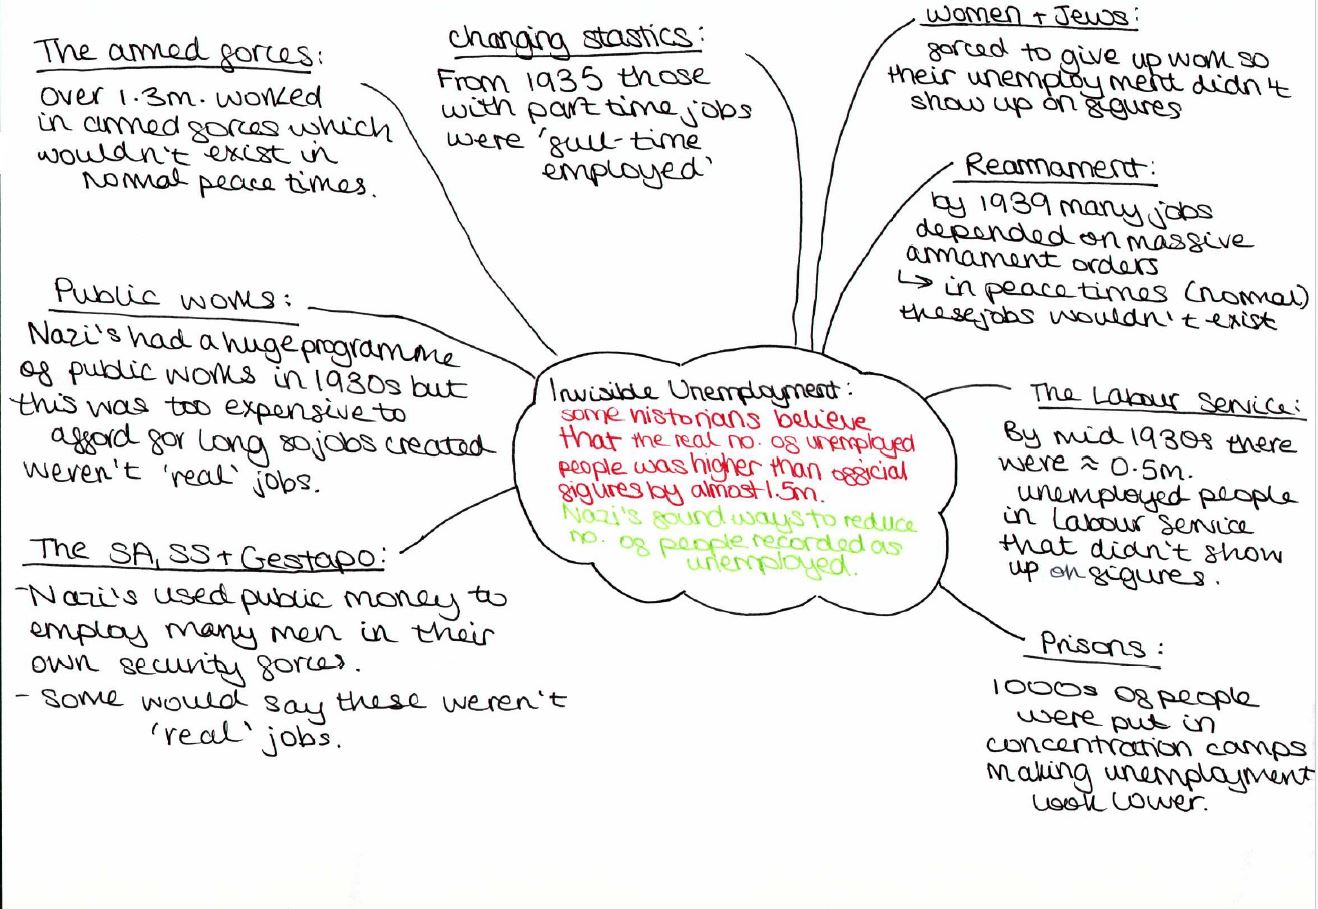 The armed forces:
over 1.3m. worked
in armed forces which
wouldn't exist in
normal peace times.
changing stastics:
From 1935 those
with part time jobs
were 'full-time
employed'
Women + Jews:
forced to give up work so
their unemployment didn't
show up on figures
Rearmament:
by 1939 many jobs
depended on massive
armament orders
↳ in peace times (normal)
these jobs wouldn't exist
Public works:
Nazi's had a huge programme
of public works in 1930s but
this was too expensive to
afford for long so jobs created
weren't 'real' jobs.
Invisible Unemployment:
some historians believe
that the real no. of unemployed
people was higher than official
figures by almost 1.5m.
Nazi's found ways to reduce
no. of people recorded as
unemployed.
The Labour Service:
By mid 1930s there
were ≈ 0.5m.
unemployed people
in Labour Service
that didn't show
up on figures.
The SA, SS + Gestapo:
- Nazi's used public money to
employ many men in their
own security forces.
- some would say these weren't
'real' jobs.
Prisons:
1000s of people
were put in
concentration camps
making unemployment
look lower.